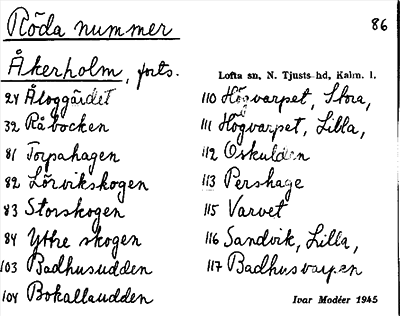 Röda nummer
86
Åkerholm, forts.
Lofta sn, N. Tjusts hd, Kalm. l.
24 Åloggärdet
32 Råbocken
81 Torpahagen
82 Lörvikskogen
83 Storskogen
84 Yttre skogen
103 Badhusudden
104 Bokallaudden
110 Högvarpet, Stora,
111 Högvarpet, Lilla,
112 Oskulden
113 Pershage
115 Varvet
116 Sandvik, Lilla,
117 Badhusvarpen
Ivar Modéer 1945